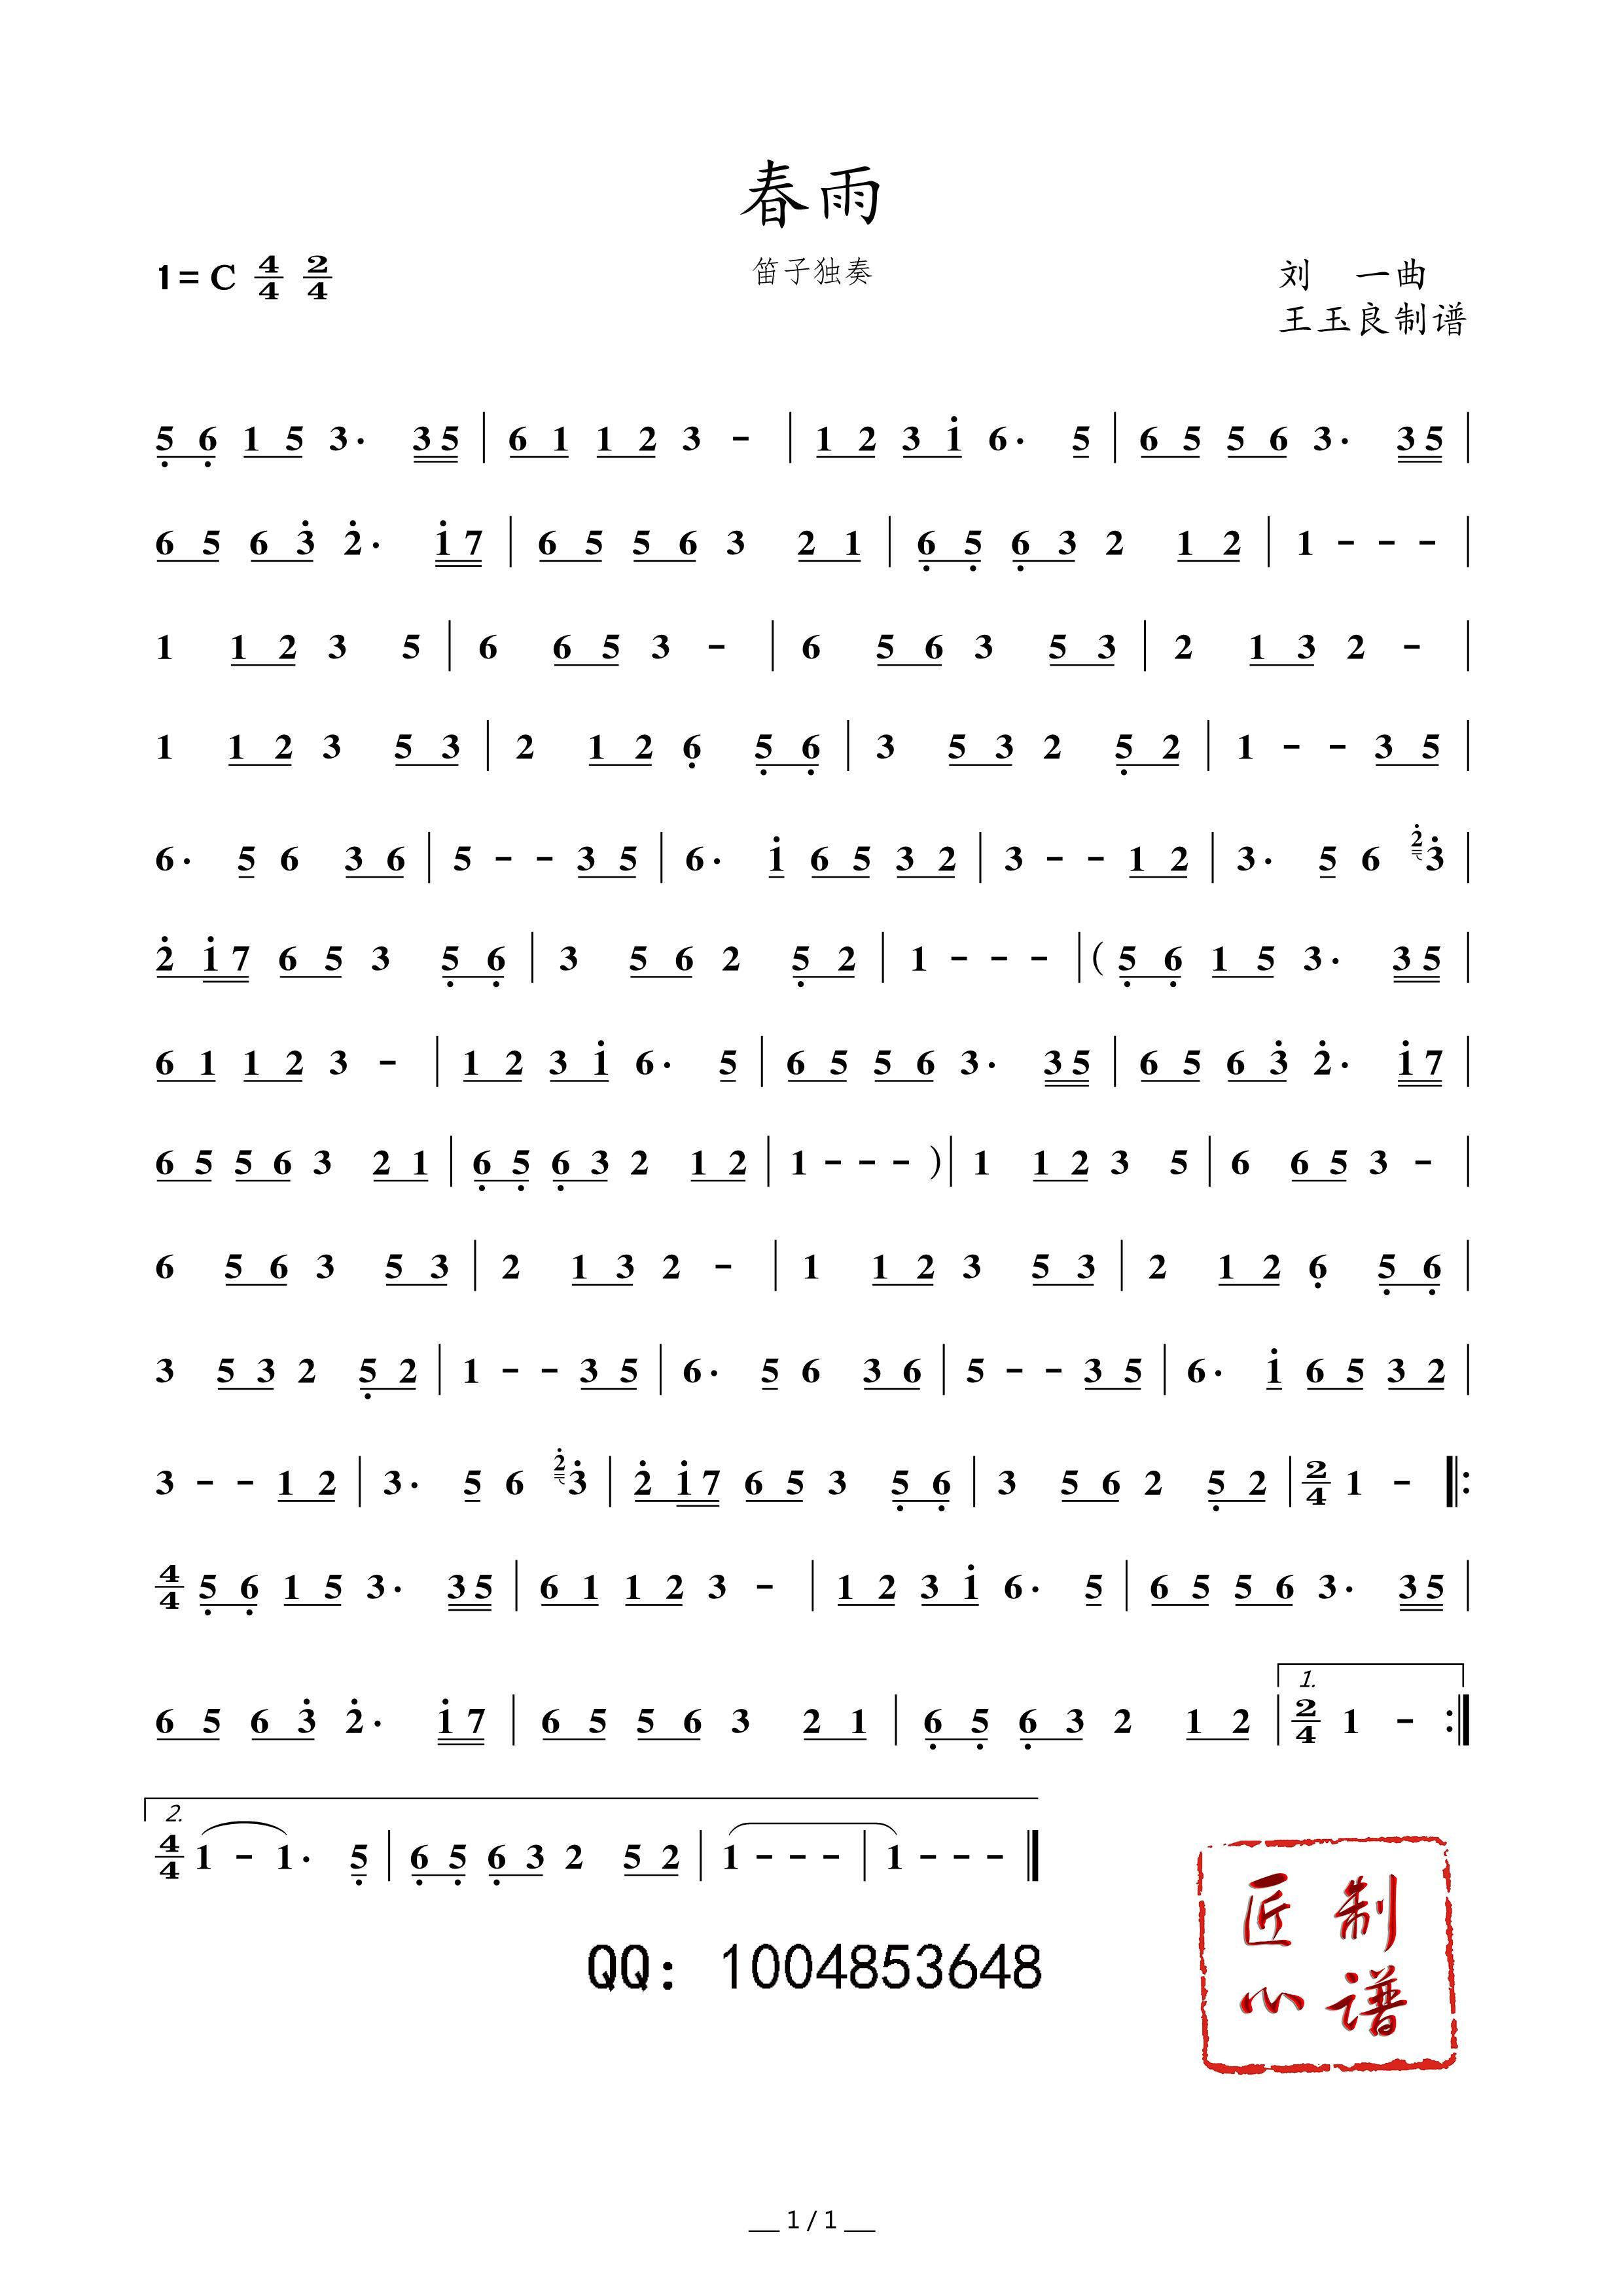 春雨
1=C 4/4 2/4
笛子独奏
刘 一曲
王玉良制谱
5̣ 6̣ 1 5 3· 3 5 | 6 1 1 2 3 - | 1 2 3 1̇ 6· 5 | 6 5 5 6 3· 3 5 |
6 5 6 3̇ 2̇· 1̇ 7 | 6 5 5 6 3 2 1 | 6̣ 5̣ 6̣ 3 2 1 2 | 1 - - - |
1 1 2 3 5 | 6 6 5 3 - | 6 5 6 3 5 3 | 2 1 3 2 - |
1 1 2 3 5 3 | 2 1 2 6̣ 5̣ 6̣ | 3 5 3 2 5̣ 2 | 1 - - 3 5 |
6· 5 6 3 6 | 5 - - 3 5 | 6· 1̇ 6 5 3 2 | 3 - - 1 2 | 3· 5 6 2̇ 3̇ |
2̇ 1̇ 7 6 5 3 5̣ 6̣ | 3 5 6 2 5̣ 2 | 1 - - - | ( 5̣ 6̣ 1 5 3· 3 5 |
6 1 1 2 3 - | 1 2 3 1̇ 6· 5 | 6 5 5 6 3· 3 5 | 6 5 6 3̇ 2̇· 1̇ 7 |
6 5 5 6 3 2 1 | 6̣ 5̣ 6̣ 3 2 1 2 | 1 - - - ) | 1 1 2 3 5 | 6 6 5 3 - |
6 5 6 3 5 3 | 2 1 3 2 - | 1 1 2 3 5 3 | 2 1 2 6̣ 5̣ 6̣ |
3 5 3 2 5̣ 2 | 1 - - 3 5 | 6· 5 6 3 6 | 5 - - 3 5 | 6· 1̇ 6 5 3 2 |
3 - - 1 2 | 3· 5 6 2̇ 3̇ | 2̇ 1̇ 7 6 5 3 5̣ 6̣ | 3 5 6 2 5̣ 2 | 2/4 1 - ‖:
4/4 5̣ 6̣ 1 5 3· 3 5 | 6 1 1 2 3 - | 1 2 3 1̇ 6· 5 | 6 5 5 6 3· 3 5 |
1.
6 5 6 3̇ 2̇· 1̇ 7 | 6 5 5 6 3 2 1 | 6̣ 5̣ 6̣ 3 2 1 2 | 2/4 1 - :‖
2.
4/4 1 - 1· 5̣ | 6̣ 5̣ 6̣ 3 2 5 2 | 1 - - - | 1 - - - ‖
QQ: 1004853648
制谱
匠心
1 / 1